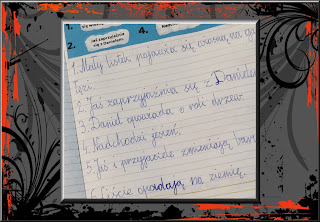 1.
się
2.
Jaś zaprzyjaźnia
się z Danielem.
4.
1. Mały listek pojawia się wiosną na ga
łęzi.
2. Jaś zaprzyjaźnia się z Danielem
3. Daniel opowiada o roli drzew.
4. Nadchodzi jesień.
5. Jaś i przyjaciele zmieniają barw
6. Liście opadają na ziemię.